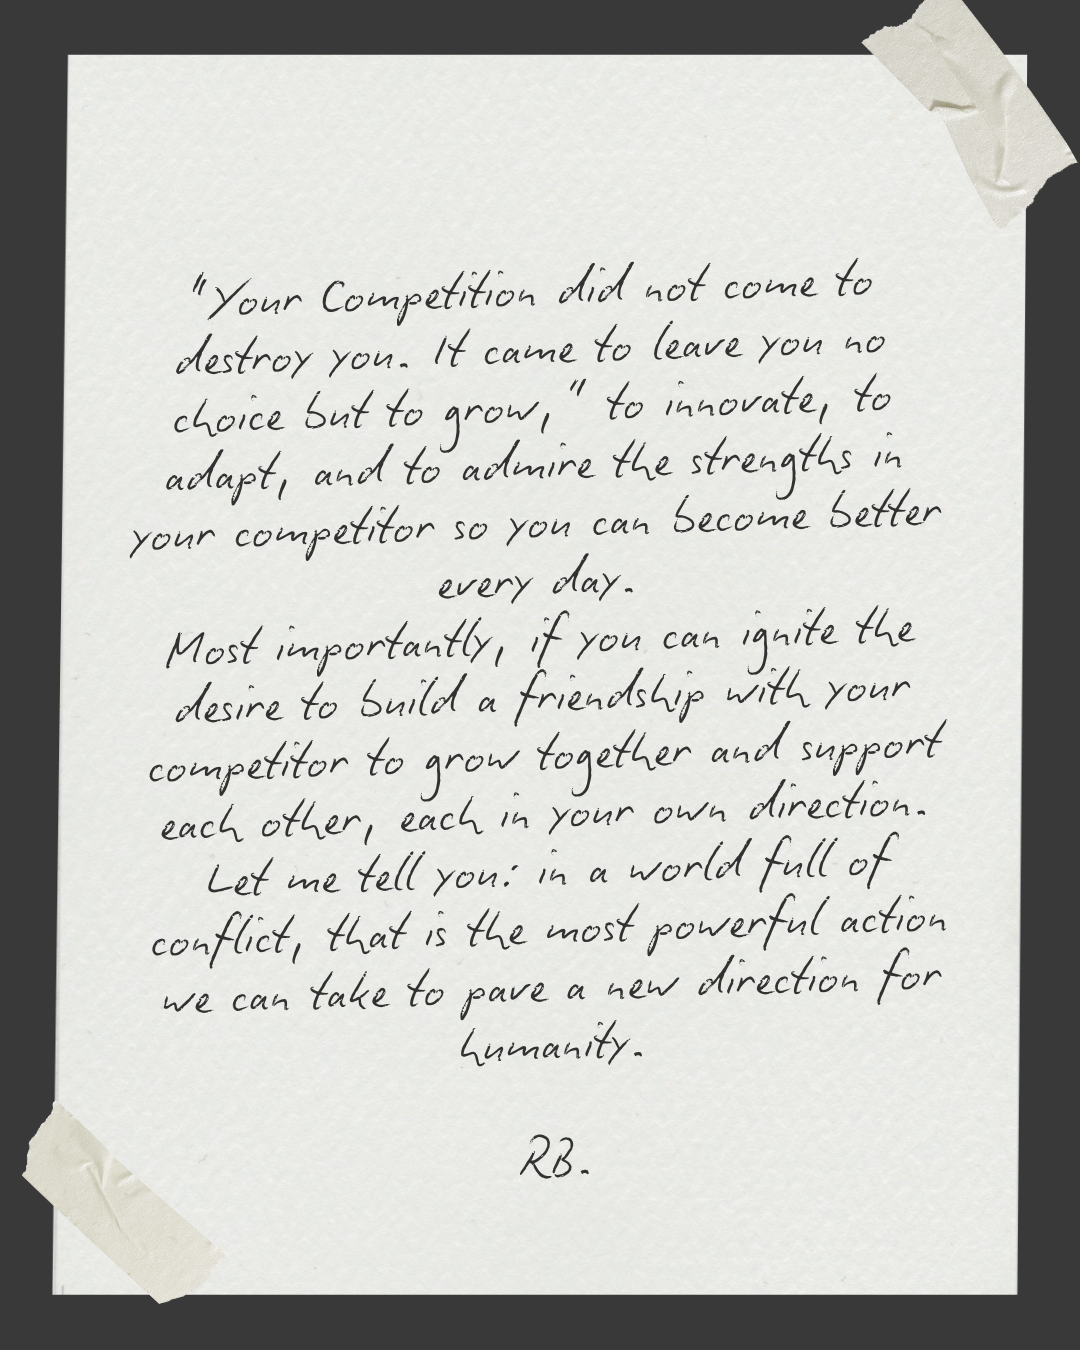 "Your Competition did not come to
destroy you. It came to leave you no
choice but to grow," to innovate, to
adapt, and to admire the strengths in
your competitor so you can become better
every day.
Most importantly, if you can ignite the
desire to build a friendship with your
competitor to grow together and support
each other, each in your own direction.
Let me tell you: in a world full of
conflict, that is the most powerful action
we can take to pave a new direction for
humanity.
RB.